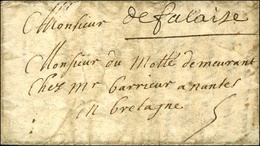 Monsieur defalaise
Monsieur du Motté demeurant
Chez Mr Carrieur a nantes
en bretagne